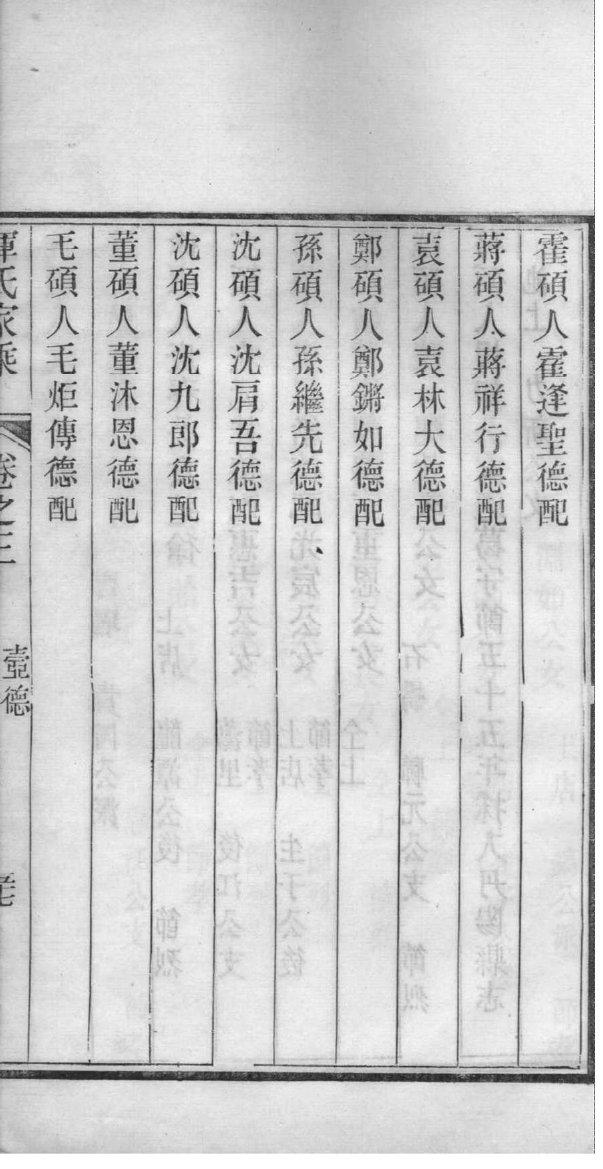 霍碩人霍逢聖德配
蔣碩人蔣祥行德配
袁碩人袁林大德配
鄭碩人鄭鏘如德配
孫碩人孫繼先德配
沈碩人沈肩吾德配
沈碩人沈九郎德配
董碩人董沐恩德配
毛碩人毛炬傳德配
氏家乘 卷之三 壼德